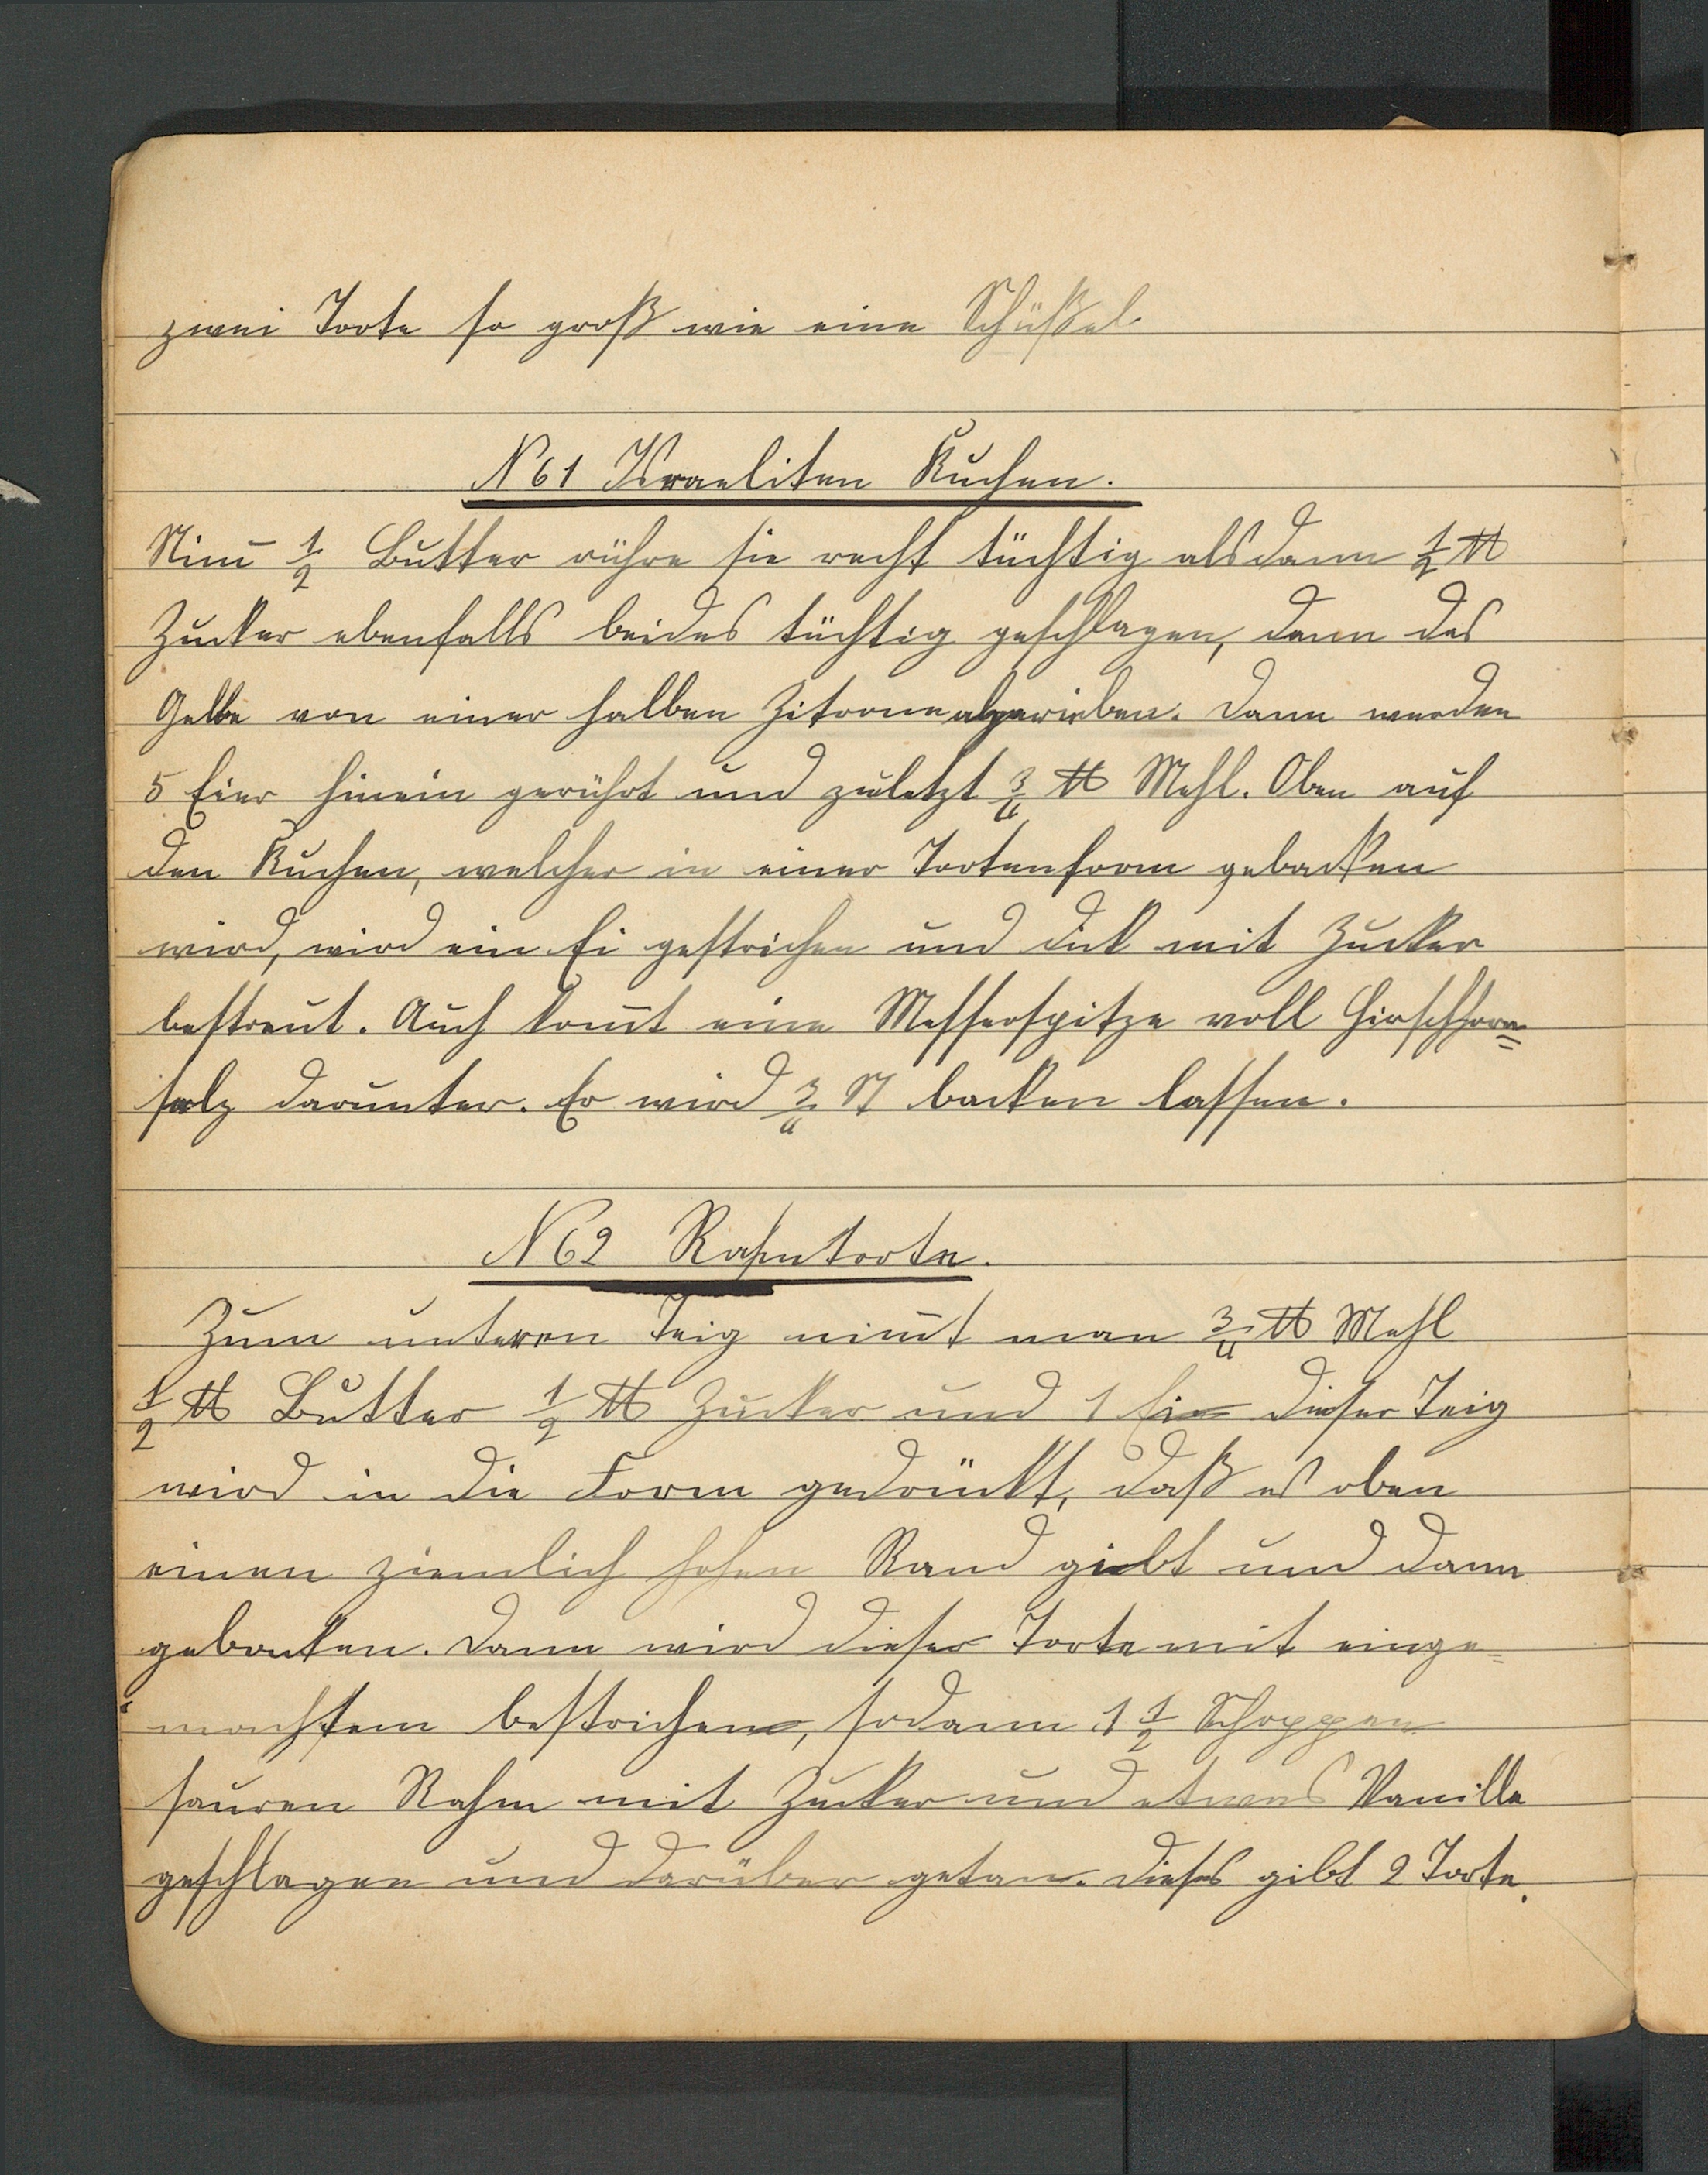 zwei Torte so groß wie eine Schüßel
N 61 Israeliten Kuchen.
Nim̄ 1/2 Butter rühre sie recht tüchtig alsdann 1/2 ℔
Zucker ebenfalls beides tüchtig geschlagen, dann das
Gelbe von einer halben Zitrone abgerieben. Dann werden
5 Eier hinein gerührt und zuletzt 3/4 ℔ Mehl. Oben auf
den Kuchen, welcher in einer Tortenform gebacken
wird, wird ein Ei gestrichen und dick mit Zucker
bestreut. Auch kom̄t eine Messerspitze voll Hirschhorn=
salz darunter. Er wird 3/4 St backen lassen.
N 62 Rahmtorte.
Zum unteren Teig nim̄t man 3/4 ℔ Mehl
1/2 ℔ Butter 1/2 ℔ Zucker und 1 Ei dieser Teig
wird in die Form gedrückt, daß es oben
einen ziemlich hohen Rand giebt und dann
gebacken. Dann wird dieser Torte mit einge=
machtem bestrichen, sodann 1 1/2 Schoppen
sauren Rahm mit Zucker und etwas Vanille
geschlagen und darüber getan. Dieses gibt 2 Torte.